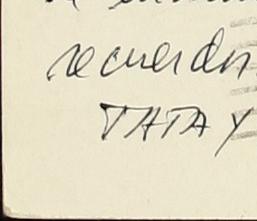 recuerdos
TATA Y